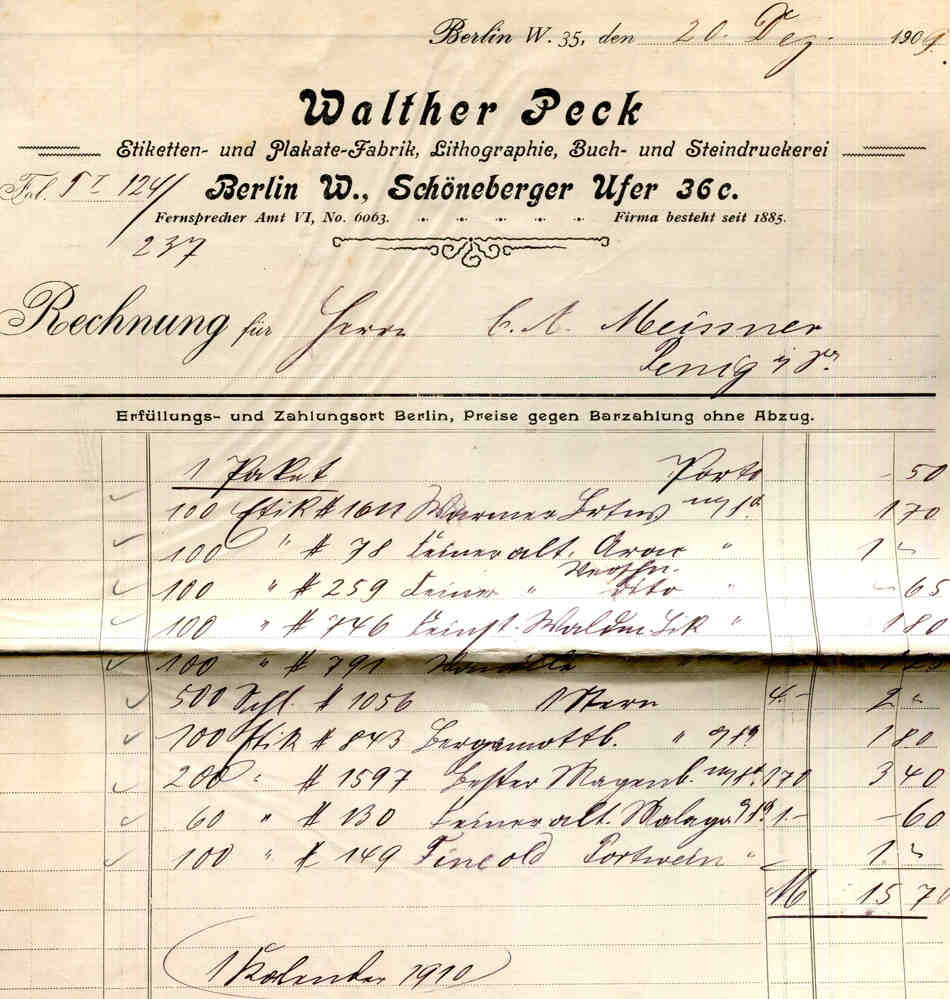 Berlin W. 35, den 20. Dez. 1909.
Walther Peck
Etiketten- und Plakate-Fabrik, Lithographie, Buch- und Steindruckerei
Fol. 1241
Berlin W., Schöneberger Ufer 36c.
Fernsprecher Amt VI, No. 6063. Firma besteht seit 1885.
237
Rechnung für Herrn C. A. Meissner
Penig i/Sa.
Erfüllungs- und Zahlungsort Berlin, Preise gegen Barzahlung ohne Abzug.
1 Paket Porto - 50
100 Etik # 1611 Warmer 1 70
100 " # 78 Feiner alt. Arac " 1 -
100 " # 259 Feiner " Verschn. dito " - 65
100 " # 746 Feinst. Waldm. " 1 80
100 " # 791 Vanille "
500 Schl. # 1056 1 Stern 4.- 2 -
100 Etik # 843 Bergamottb. " 1 80
200 " # 1597 Bester Magenb. 1 70 3 40
60 " # 130 Feiner alt. Malaga 1.- - 60
100 " # 149 Fine old Portwein " 1. -
M 15 70
1 Kalender 1910